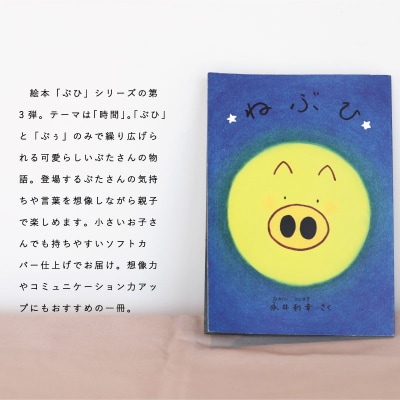 絵本「ぷひ」シリーズの第
3弾。テーマは「時間」。「ぷひ」
と「ぷぅ」のみで繰り広げら
れる可愛らしいぶたさんの物
語。登場するぶたさんの気持
ちや言葉を想像しながら親子
で楽しめます。小さいお子さ
んでも持ちやすいソフトカ
バー仕上げでお届け。想像力
やコミュニケーション力アッ
プにもおすすめの一冊。
ねぷひ
永井 さく